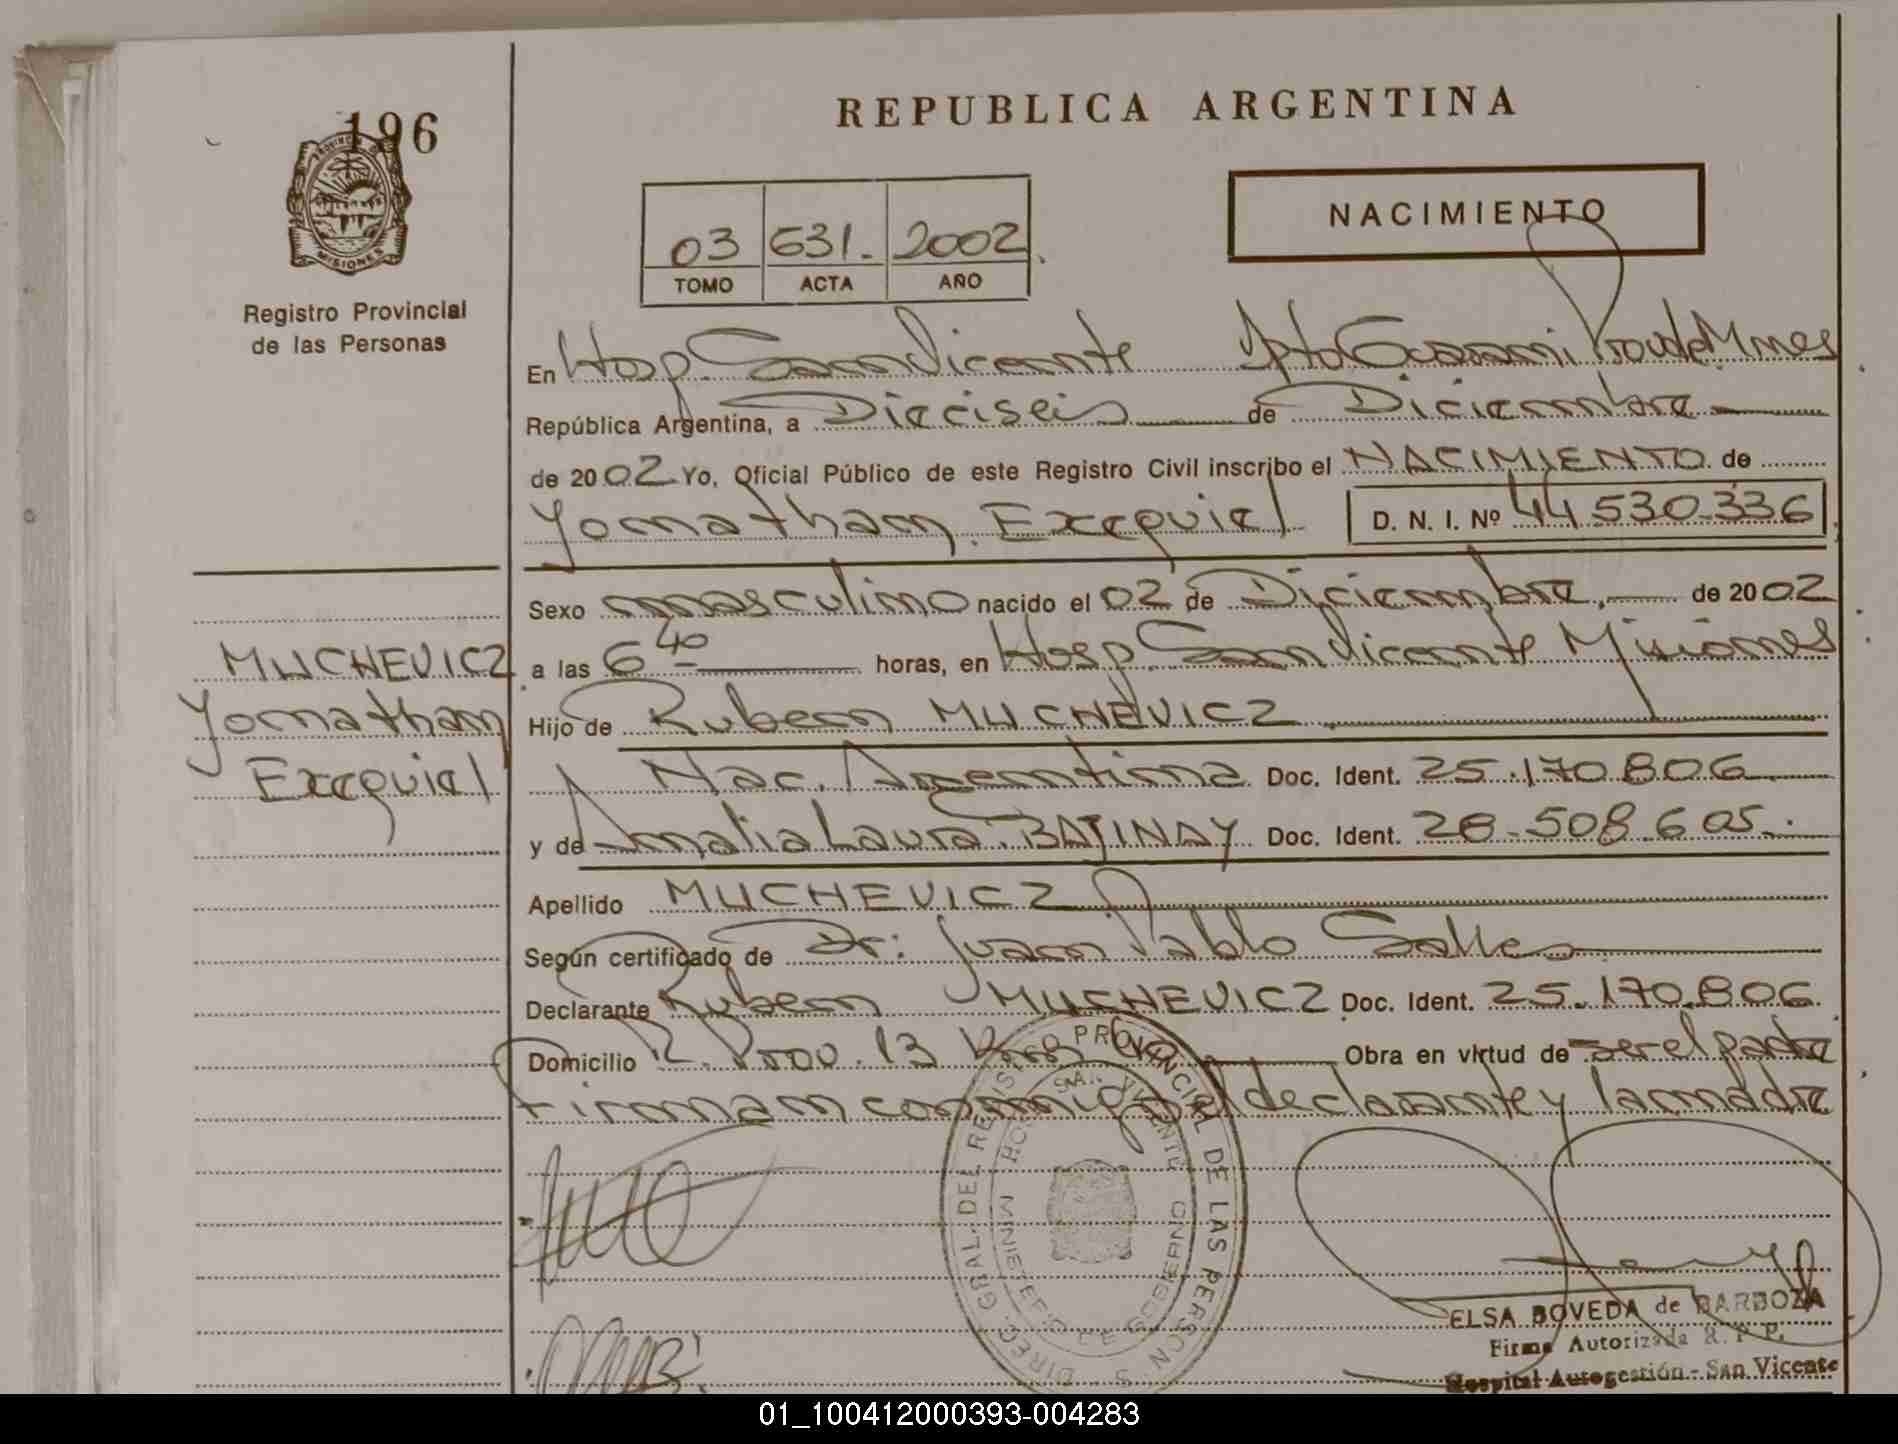 196
PROVINCIA DE
MISIONES
Registro Provincial
de las Personas
MUCHEVICZ
Yonathan
Exequiel
REPUBLICA ARGENTINA
NACIMIENTO
03 631. 2002
TOMO ACTA AÑO
En Hosp. San Vicente Dpto Guarani Prov de Mnes
República Argentina, a Dieciseis de Diciembre
de 2002 Yo, Oficial Público de este Registro Civil inscribo el NACIMIENTO de
Yonathan Exequiel D. N. I. Nº 44 530.336
Sexo masculino nacido el 02 de Diciembre de 2002
a las 6 40 horas, en Hosp. San Vicente Misiones
Hijo de Ruben MUCHEVICZ
Nac. Argentina Doc. Ident. 25.170.806
y de Amalia Laura BATINAY Doc. Ident. 28.508.605.
Apellido MUCHEVICZ
Según certificado de Dr: Juan Pablo Salles
Declarante Ruben MUCHEVICZ Doc. Ident. 25.170.806
Domicilio R. Prov. 13 Km Obra en virtud de ser el padre
Firman conmigo el declarante y la madre
DIREC. GRAL. DEL REGISTRO PROVINCIAL DE LAS PERSONAS
MINISTERIO DE GOBIERNO
HOSP. SAN VICENTE
ELSA BOVEDA de BARBOZA
Firma Autorizada R. P. P.
Hospital Autogestión - San Vicente
01_100412000393-004283